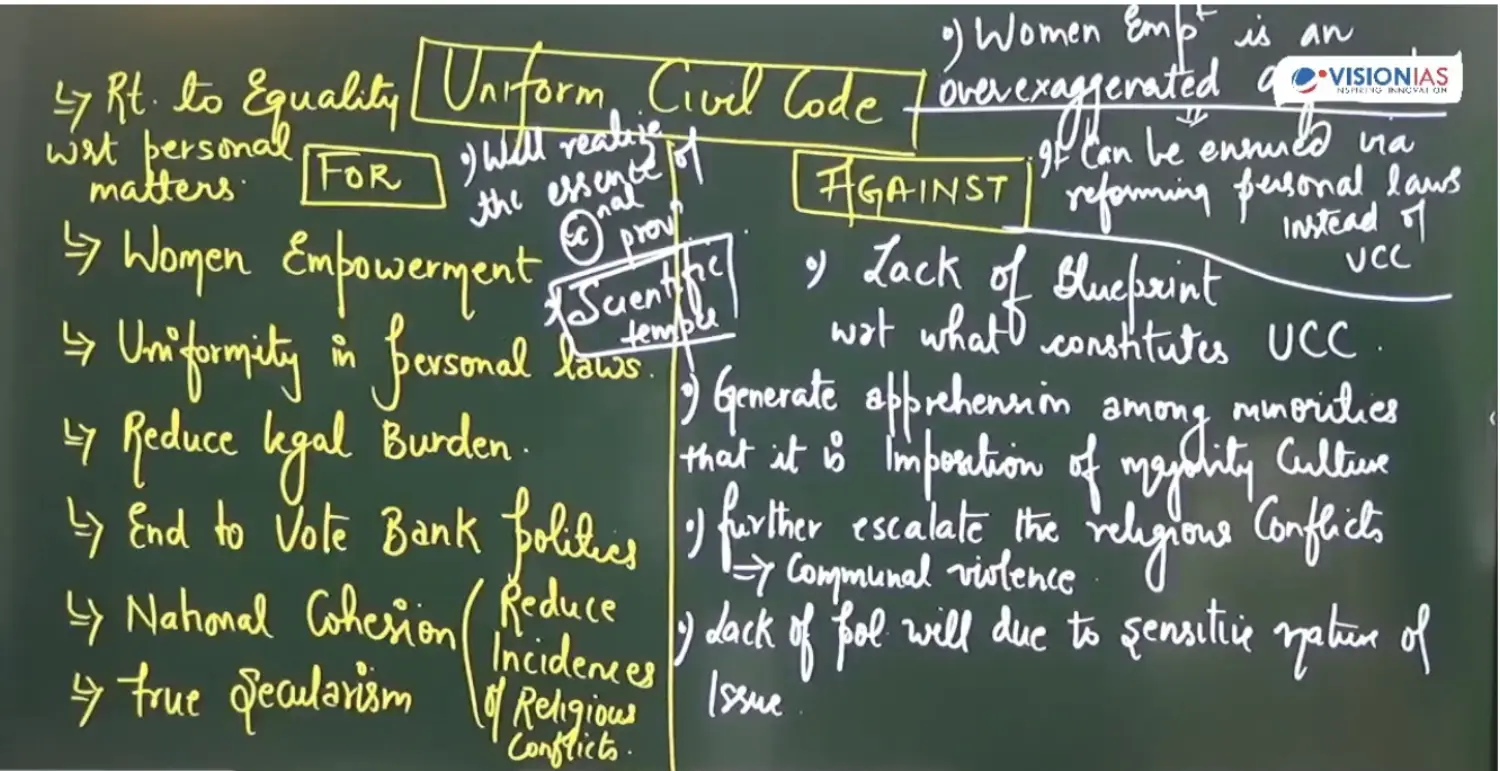 Uniform Civil Code
↳ Rt. to Equality
wrt personal
matters.
FOR
•) Will realize
the essence of
nal
prov
* Scientific
temple
↳ Women Empowerment
↳ Uniformity in personal laws.
↳ Reduce legal Burden.
↳ End to Vote Bank politics
↳ National Cohesion
(Reduce
Incidences
of Religious
Conflicts.
↳ True Secularism
•) Women Empt is an
overexaggerated
VISIONIAS
INSPIRING INNOVATION
AGAINST
It can be ensured via
reforming personal laws
instead of
UCC
•) Lack of Blueprint
wrt what constitutes UCC.
•) Generate apprehension among minorities
that it is Imposition of majority Culture
•) further escalate the religious Conflicts
⇒ Communal violence.
•) Lack of pol. will due to sensitive nature of
Issue.